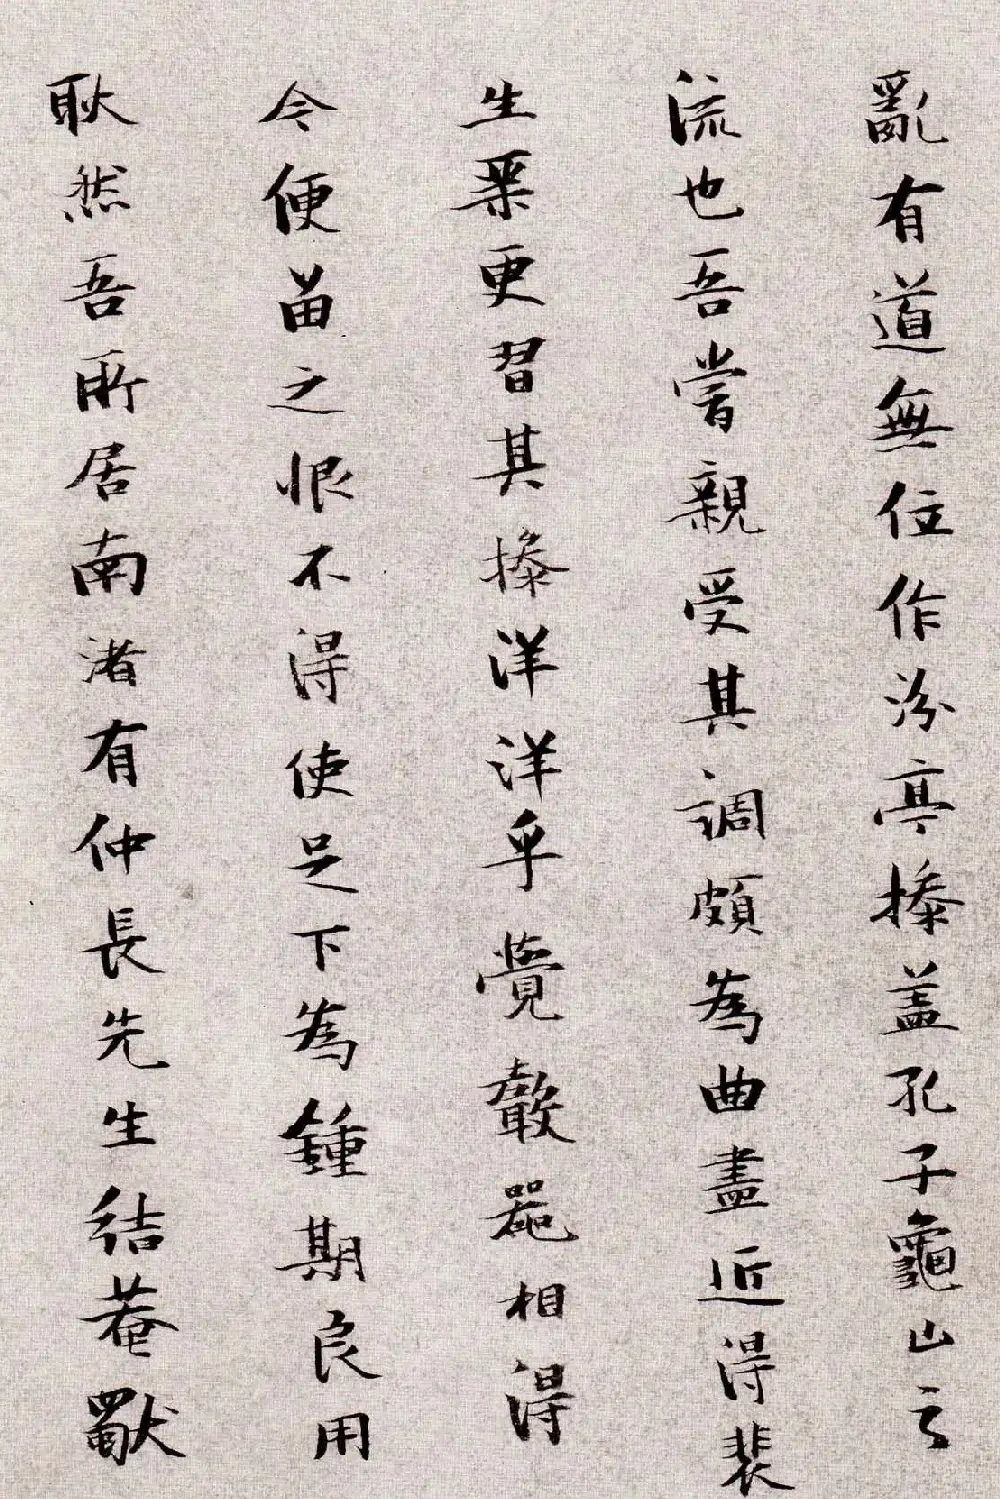 亂有道無位作汾亭操盖孔子龜山之
流也吾嘗親受其調頗為曲盡近得裴
生琴更習其操洋洋乎覺聲器相得
今便留之恨不得使足下為鍾期良用
耿然吾所居南渚有仲長先生結菴獨